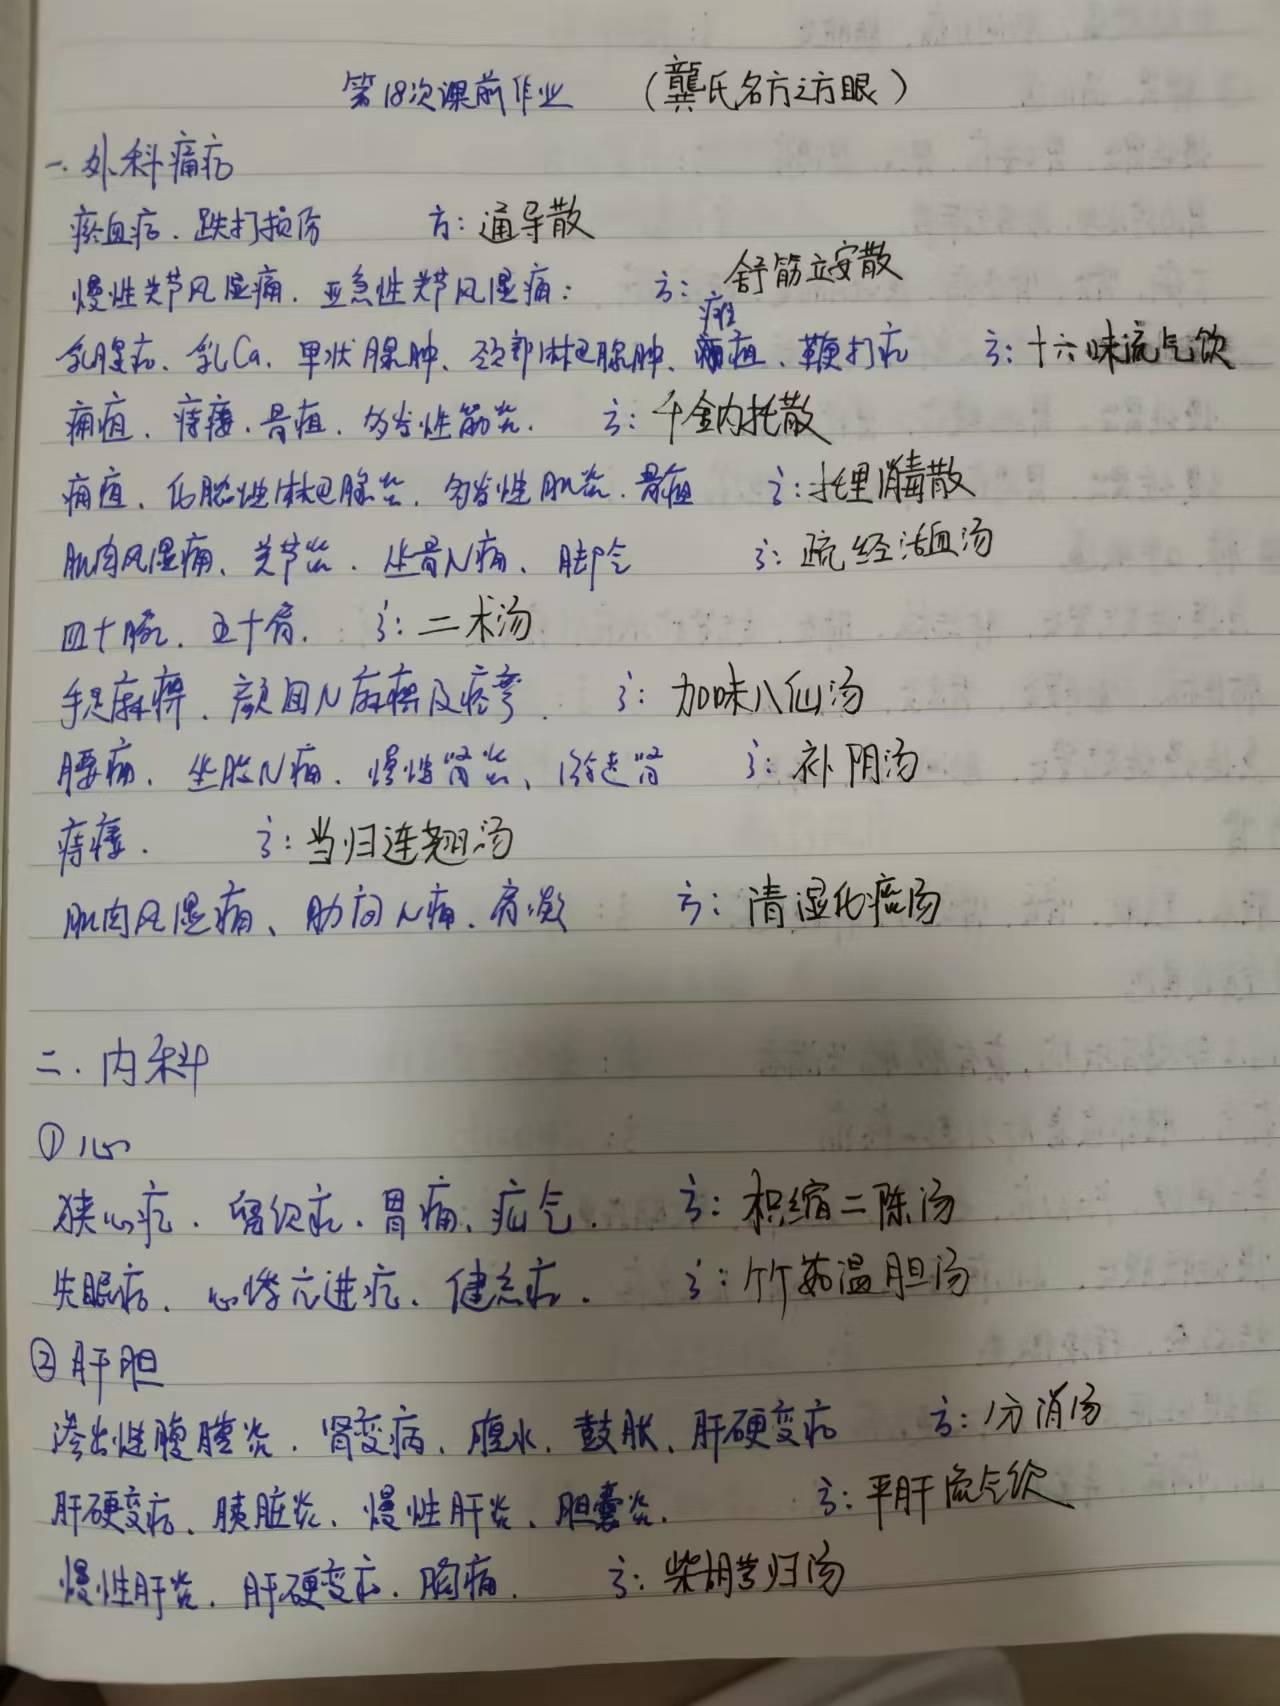 第18次课前作业 （龔氏名方之方眼）
一. 外科痛疠
瘀血疠. 跌打损伤 方: 通导散
慢性关节风湿痛. 亚急性关节风湿痛: 方: 舒筋立安散
瘫
乳腺疠、乳Ca. 甲状腺肿、颈部淋巴腺肿、疽、鞭打疠 方: 十六味流气饮
痈疽. 痔瘘. 骨疽. 多发性筋炎. 方: 千金内托散
痈疽. 化脓性淋巴腺炎. 多发性肌炎. 骨疽 方: 托里消毒散
肌肉风湿痛、关节炎. 坐骨N痛、脚气 方: 疏经活血汤
四十腕. 五十肩. 方: 二术汤
手足麻痹. 颜面N麻痹及痉挛. 方: 加味八仙汤
腰痛. 坐股N痛. 慢性肾炎、游走肾 方: 补阴汤
痔瘘. 方: 当归连翘汤
肌肉风湿痛、肋间N痛. 肩凝 方: 清湿化痰汤
二. 内科
① 心
狭心症. 留饮症. 胃痛、疝气. 方: 枳缩二陈汤
失眠症. 心悸亢进症. 健忘症. 方: 竹茹温胆汤
② 肝胆
渗出性腹膜炎. 肾变病. 腹水. 鼓胀、肝硬变病 方: 分消汤
肝硬变病. 胰脏炎. 慢性肝炎、胆囊炎. 方: 平肝流气饮
慢性肝炎. 肝硬变症. 胸痛. 方: 柴胡芎归汤